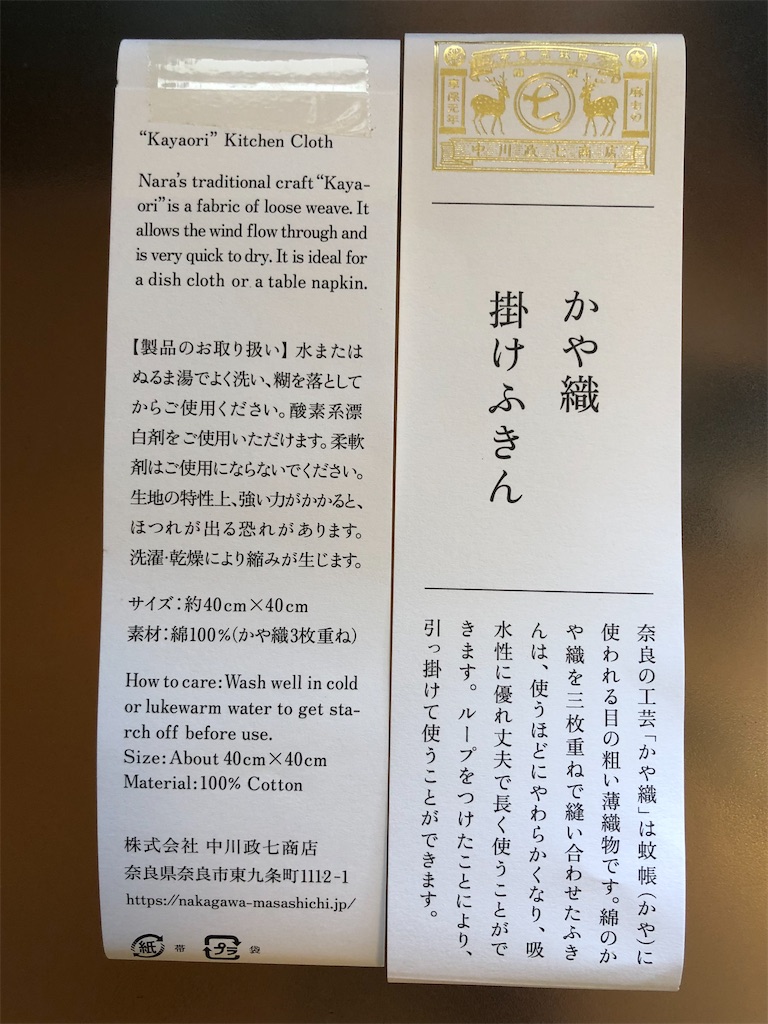 “Kayaori” Kitchen Cloth
Nara’s traditional craft “Kaya-
ori” is a fabric of loose weave. It
allows the wind flow through and
is very quick to dry. It is ideal for
a dish cloth or a table napkin.
【製品のお取り扱い】水または
ぬるま湯でよく洗い、糊を落として
からご使用ください。酸素系漂
白剤をご使用いただけます。柔軟
剤はご使用にならないでください。
生地の特性上、強い力がかかると、
ほつれが出る恐れがあります。
洗濯・乾燥により縮みが生じます。
サイズ：約40cm×40cm
素材：綿100％（かや織3枚重ね）
How to care：Wash well in cold
or lukewarm water to get sta-
rch off before use.
Size：About 40cm×40cm
Material：100% Cotton
株式会社 中川政七商店
奈良県奈良市東九条町1112-1
https://nakagawa-masashichi.jp/
紙 帯 プラ 袋
七
中川政七商店
かや織
掛けふきん
奈良の工芸「かや織」は蚊帳（かや）に
使われる目の粗い薄織物です。綿のか
や織を三枚重ねで縫い合わせたふき
んは、使うほどにやわらかくなり、吸
水性に優れ丈夫で長く使うことがで
きます。ループをつけたことにより、
引っ掛けて使うことができます。